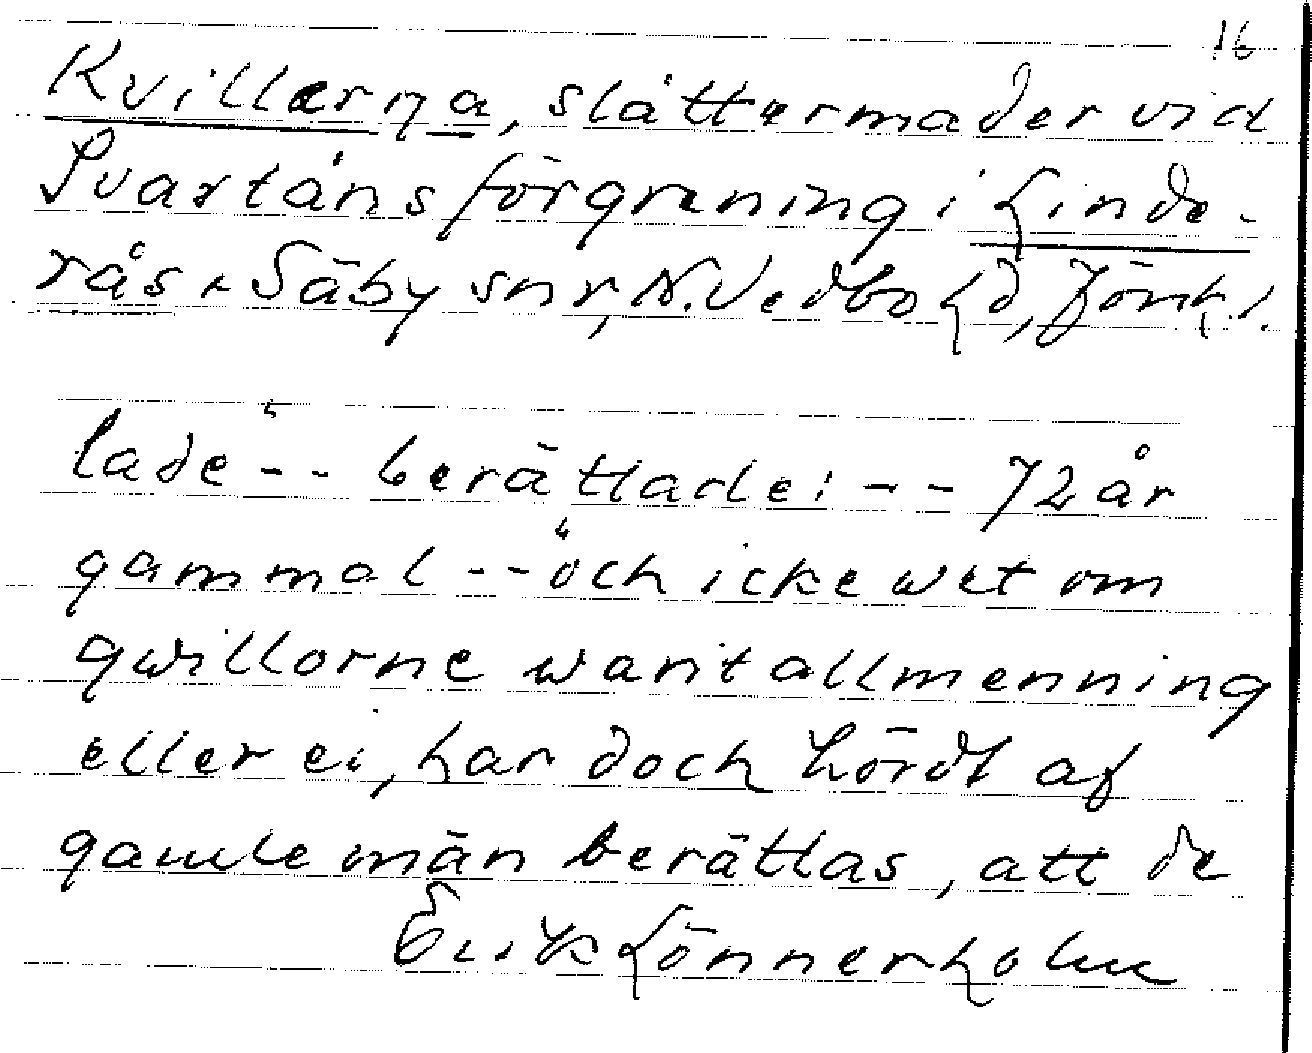 16
Kvillerna, slåttermader vid
Svartåns förgrening i Linde-
rås o Säby snr, N. Vedbo hd, Jönk l.
lade" -- berättade: -- 72 år
gammal -- "och icke wet om
qwillorne warit allmenning
eller ei, har doch hördt af
gamle män berättas, att de
Erik Lönnerholm